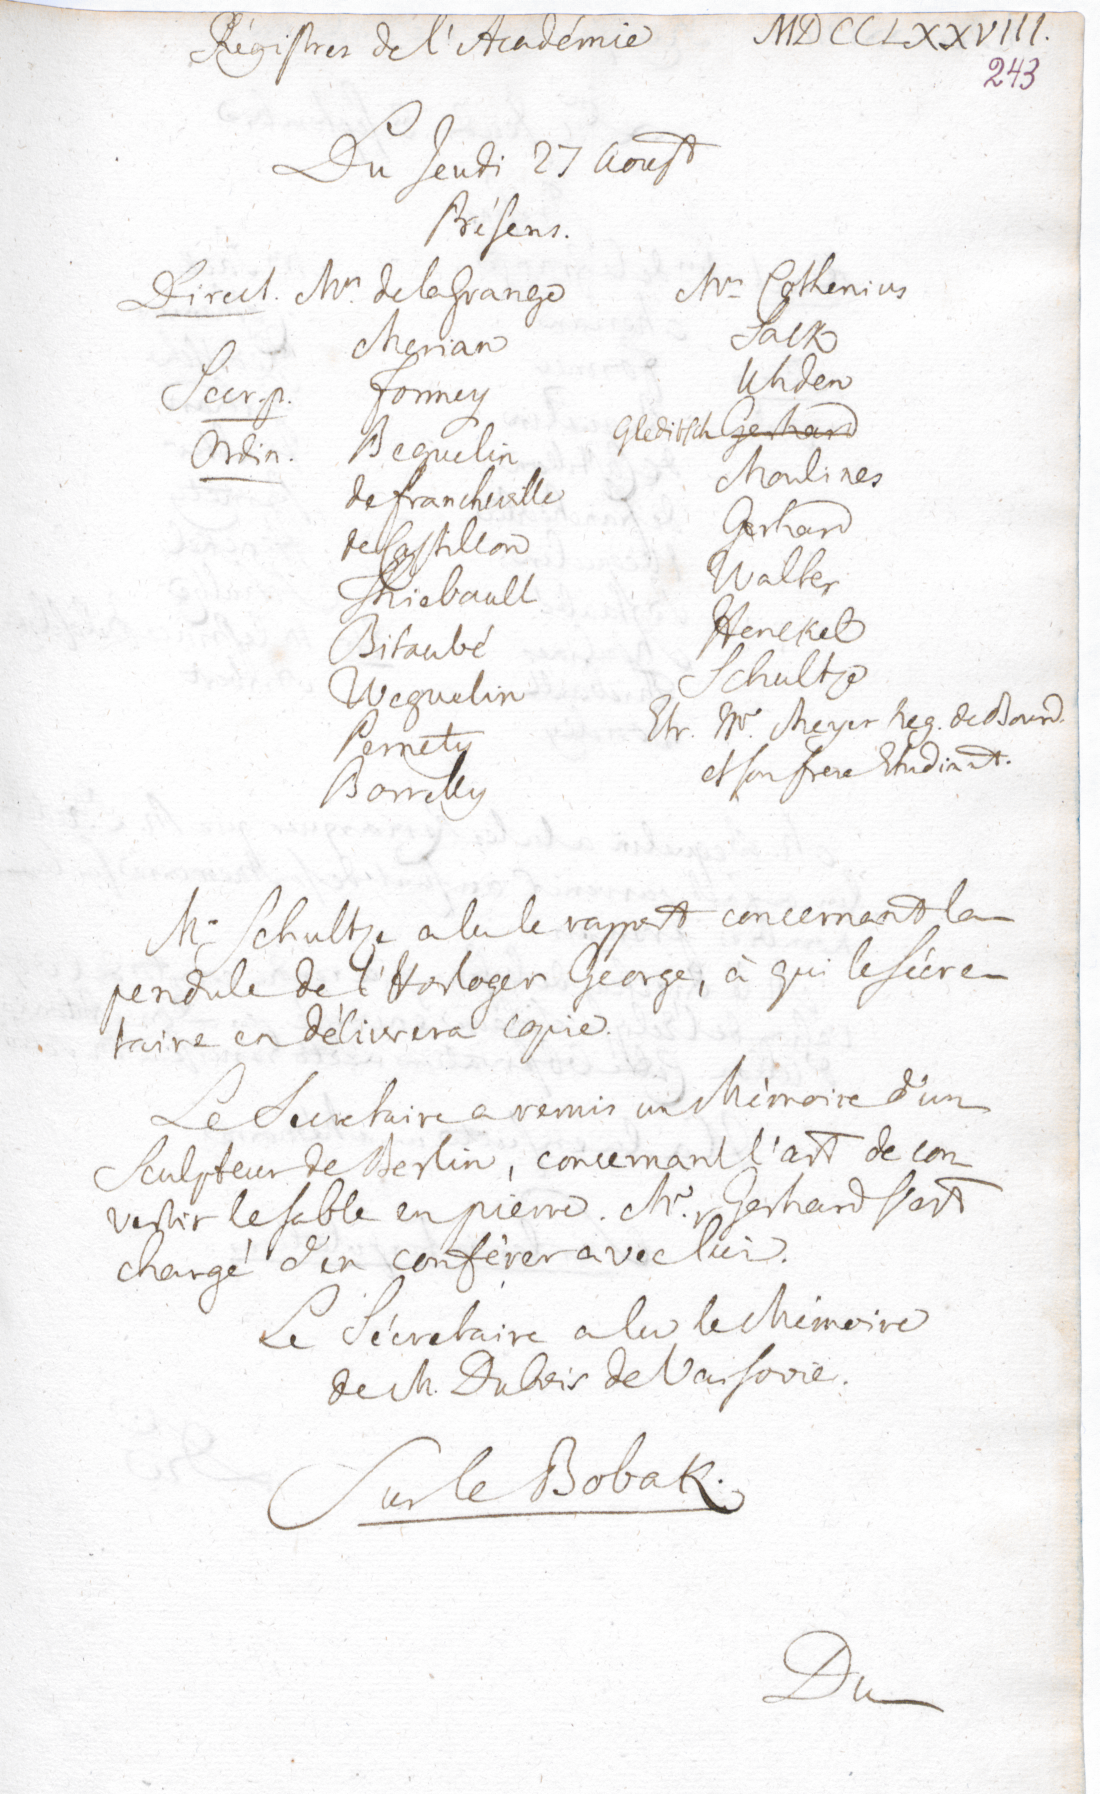 Régistres de l'Académie MDCCLXXVIII.
243
Du Jeudi 27 Aoust
Présens.
Direct. Mrs. de la Grange
Merian
Secr. p. Formey
Ordin. Beguelin
de Francheville
de Castillon
Thiebault
Bitaubé
Weguelin
Pernety
Borrelly
Mrs Cothenius
Sack
Uhden
Gleditsch Gerhard
Moulines
Gerhard
Walter
Henckel
Schultze
Etr. Mr. Meyer Reg. de Bourd.
et son frere Etudiant.
Mr Schultze a lu le rapport concernant la
pendule de l'Horloger George, à qui le sécre-
taire en délivrera copie.
Le Secretaire a remis un Mémoire d'un
Sculpteur de Berlin, concernant l'art de con-
vertir le sable en pierre. Mr. Gerhard s'est
chargé d'en conférer avec lui.
Le Sécretaire a lu le Mémoire
de M. Dubois de Varsovie.
Sur le Bobak.
Du